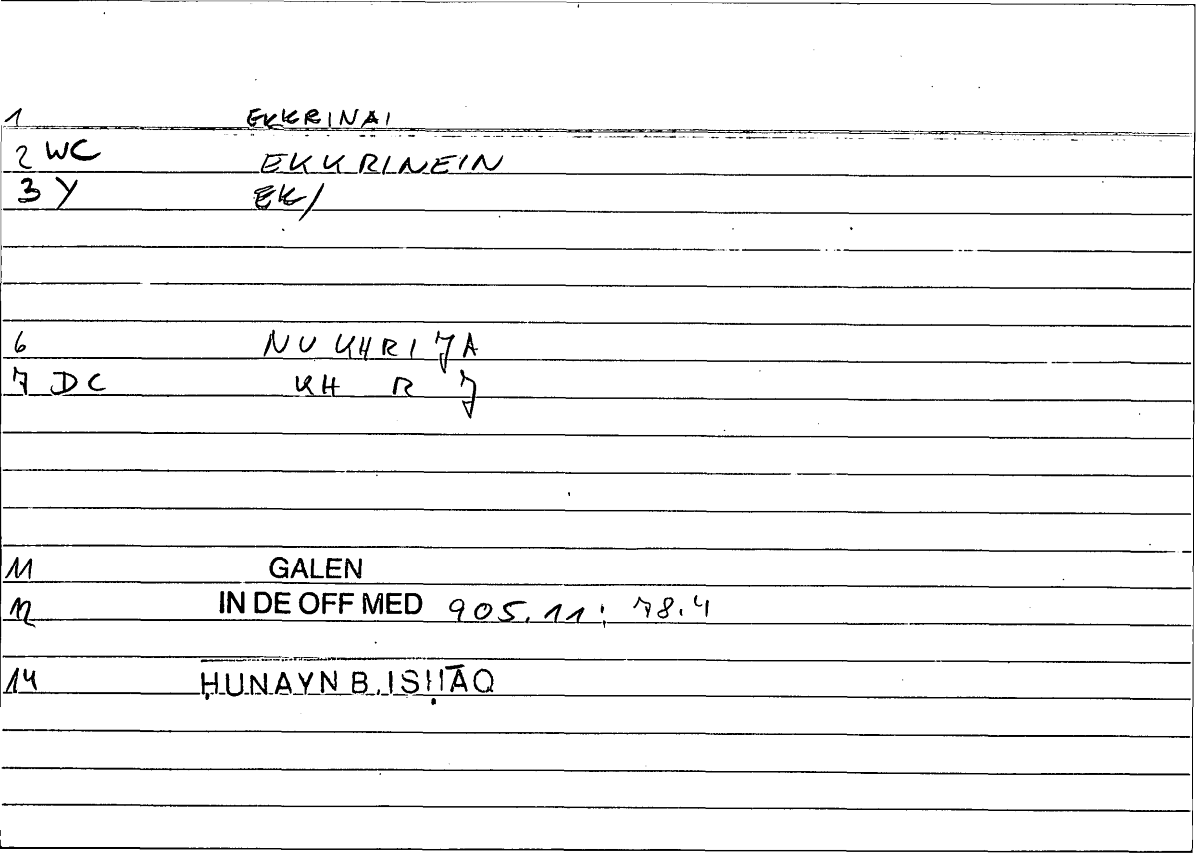 1 EKKRINAI
2 WC EKKRINEIN
3 Y EK/
6 NUKHRIJA
7 DC KH R J
11 GALEN
12 IN DE OFF MED 905.11; 78.4
14 ḤUNAYN B. ISḤĀQ